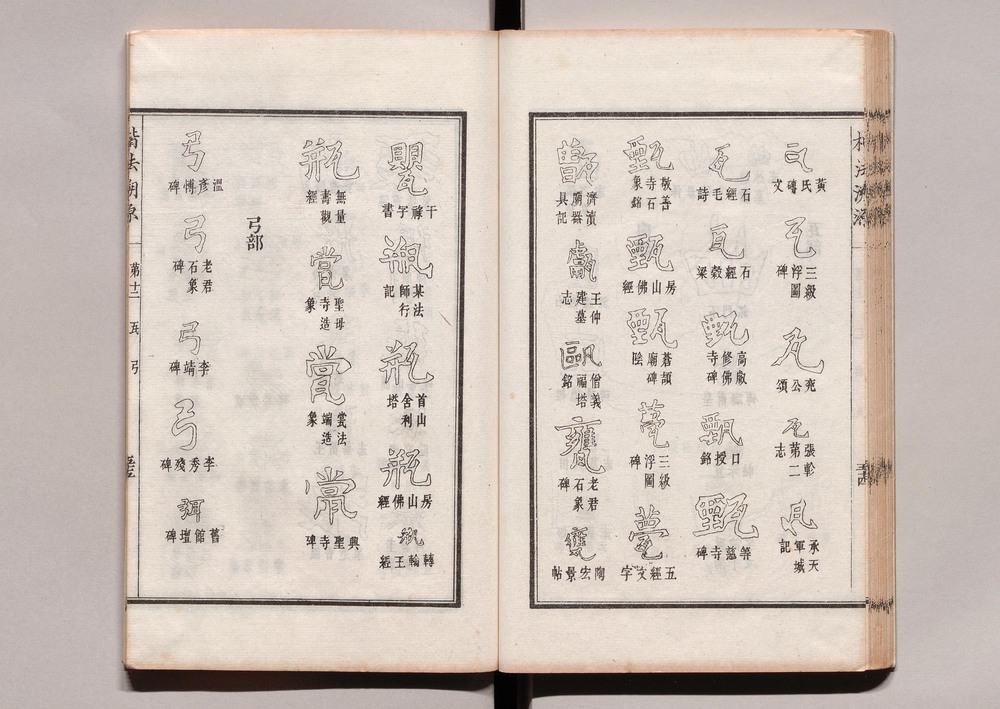 楷法溯源
瓦 黃氏磚文
瓦 三級浮圖碑
瓦 兗公頌
瓦 張軫第二志
瓦 承天軍城記
瓦 石經毛詩
瓦 石經穀梁
甄 高叡修佛寺碑
甄 口授銘
甄 等慈寺碑
甄 敬善寺石象銘
甄 房山佛經
甄 蒼頡廟碑陰
甍 三級浮圖碑
甍 五經文字
甑 濟瀆廟器具記
甗 王仲建墓志
甌 僧義福塔銘
甕 老君石象碑
甕 陶宏景帖
甖 干祿字書
瓶 某法師行記
瓶 首山舍利塔
瓶 房山佛經
瓶 轉輪王經
瓶 無量壽觀經
甞 聖母寺造象
甞 法端造象
甞 興聖寺碑
弓部
弓 溫彥博碑
弓 老君石象碑
弓 李靖碑
弓 李秀殘碑
弭 舊館壇碑
楷法溯源 第十二 瓦 弓